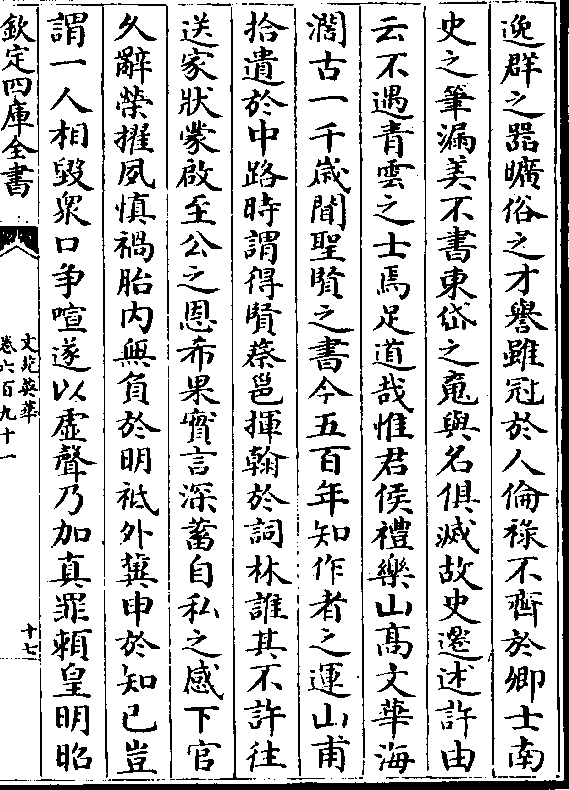 逸群之器曠俗之才譽雖冠於人倫祿不齊於卿士南
史之筆漏美不書東岱之䰟與名俱滅故史遷述許由
云不遇青雲之士焉足道哉惟君侯禮樂山高文華海
濶古一千歳聞聖賢之書今五百年知作者之運山甫
拾遺於中路時謂得賢蔡邕揮翰於詞林誰其不許往
送家狀蒙啟至公之恩希果實言深蓄自私之感下官
久辭榮擢夙慎禍胎内無負於明祗外冀申於知已豈
謂一人相毁衆口争喧遂以虚聲乃加真罪頼皇明昭
欽定四庫全書
文苑英華
卷六百九十一
十七